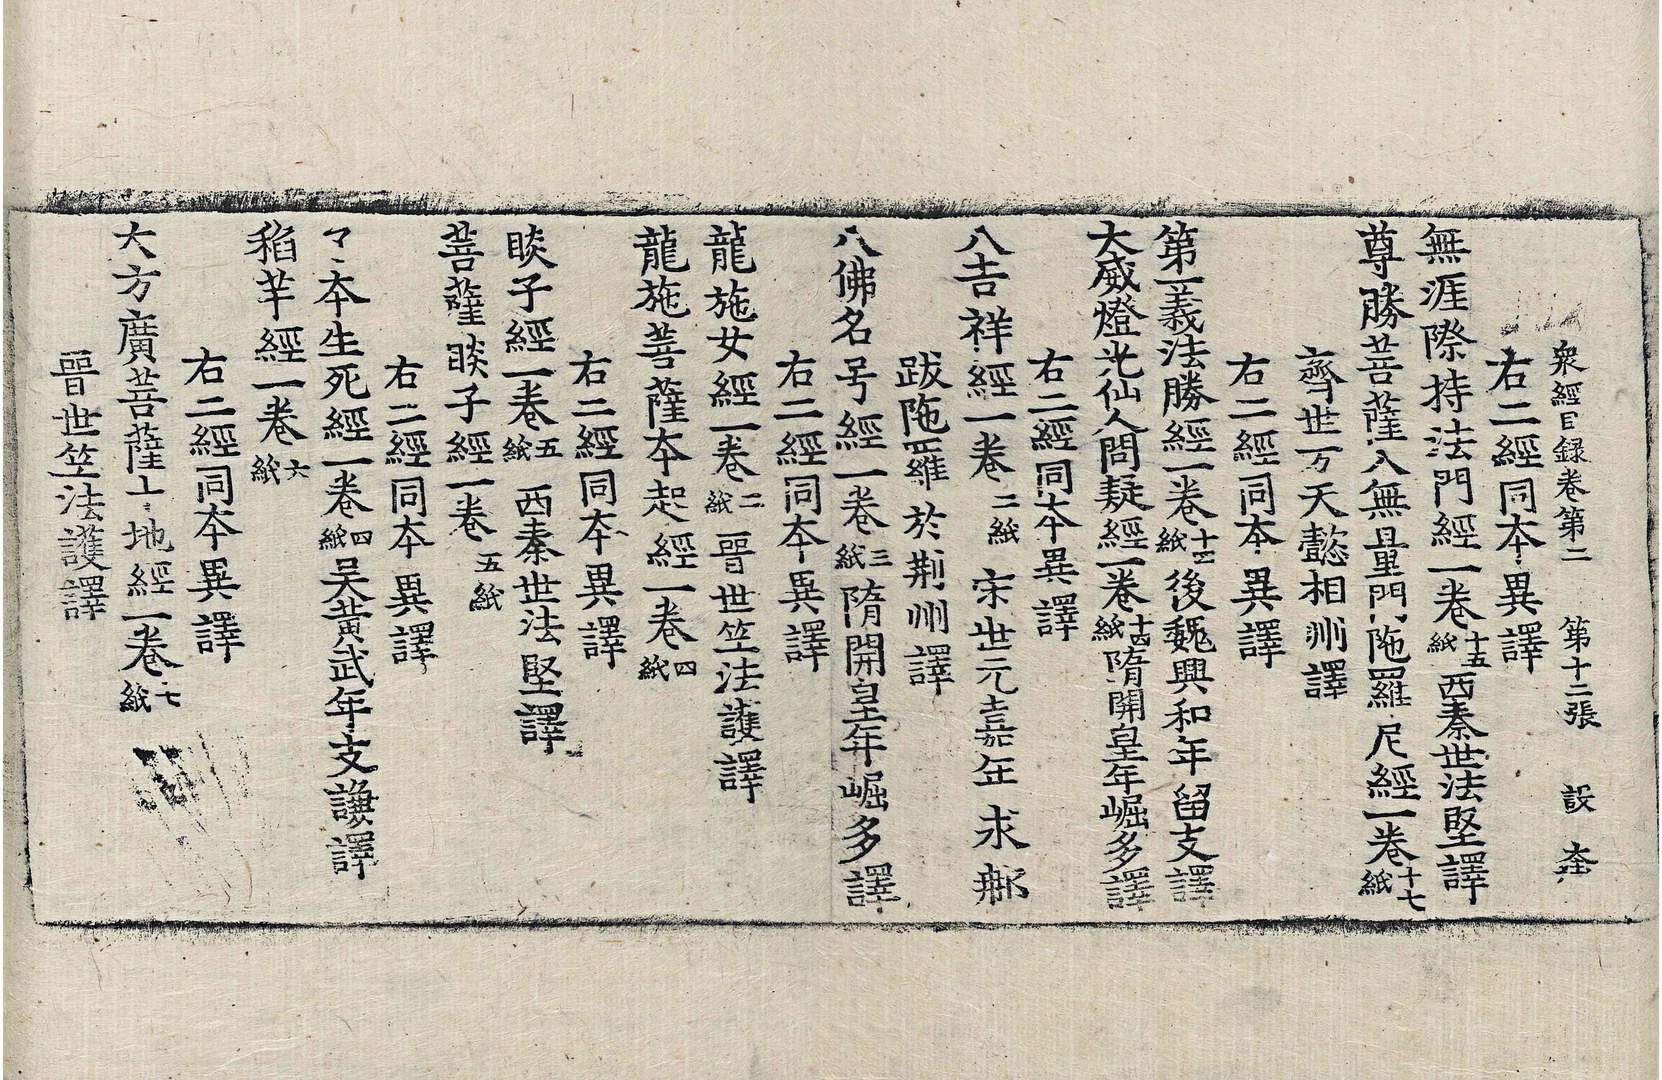 衆經目録卷第二 第十二張 設
右二經同本異譯
無涯際持法門經一卷 十五紙 西秦世法堅譯
尊勝菩薩入無量門陁羅尼經一卷 十七紙
齊世万天懿相州譯
右二經同本異譯
第一義法勝經一卷 紙 後魏興和年留支譯
大威燈光仙人問疑經一卷 十四紙 隋開皇年崛多譯
右二經同本異譯
八吉祥經一卷 二紙 宋世元嘉年求那
跋陁羅於荊州譯
八佛名号經一卷 三紙 隋開皇年崛多譯
右二經同本異譯
龍施女經一卷 二紙 晉世竺法護譯
龍施菩薩本起經一卷 四紙
右二經同本異譯
睒子經一卷 五紙 西秦世法堅譯
菩薩睒子經一卷 五紙
右二經同本異譯
了本生死經一卷 四紙 吴黃武年支謙譯
稻芉經一卷 六紙
右二經同本異譯
大方廣菩薩十地經一卷 七紙
晉世竺法護譯